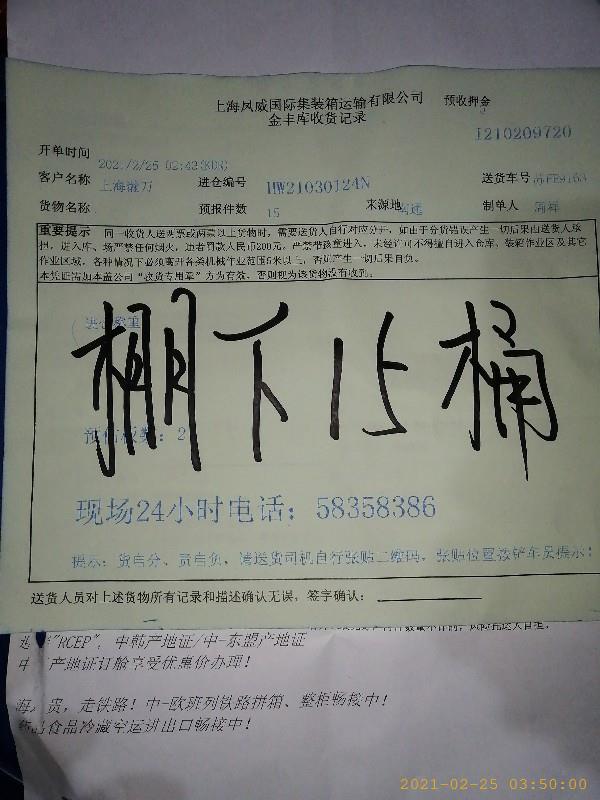 上海凤威国际集装箱运输有限公司
预收押金
金丰库收货记录
I210209720
开单时间
2021/2/25 02:42(KDR)
客户名称
进仓编号
HW21030124N
送货车号
货物名称
预报件数
15
来源地
制单人
重要提示
同一收货人送两票或两票以上货物时，需要送货人自行对应分开，如由于分货错误产生一切后果由送货人承
担，进入库、场严禁任何烟火，违者罚款人民币200元，严禁带孩童进入，未经许可不得擅自进入仓库、装箱作业区及其它
作业区域，各种情况下必须离开各类机械作业范围5米以上，否则产生一切后果自负。
本凭证需加本盖公司“收货专用章”方为有效，否则视为该货物没有收到。
棚下15桶
现场24小时电话：58358386
提示：货自分、责自负，请送货司机自行张贴二维码，张贴位置按铲车员提示！
送货人员对上述货物所有记录和描述确认无误，签字确认：
"RCEP"，中韩产地证/中-东盟产地证
产地证订舱享受优惠价办理！
贵，走铁路！中-欧班列铁路拼箱、整柜畅接中！
食品冷藏空运进出口畅接中！
2021-02-25 03:50:00